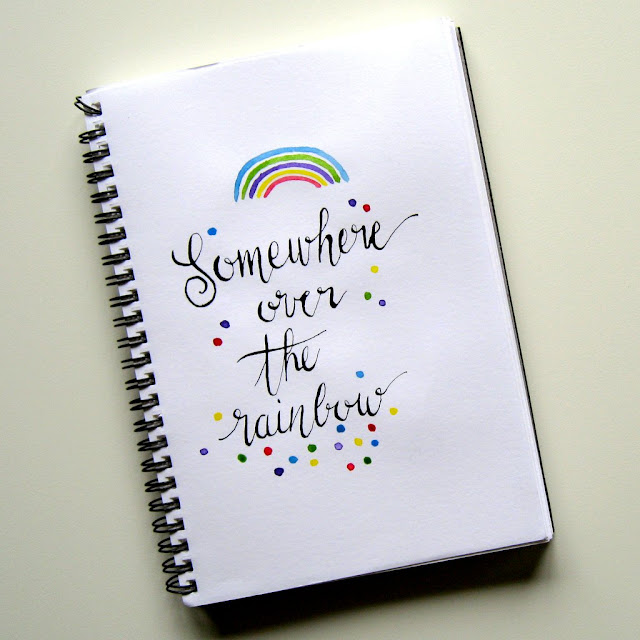 Somewhere
over
the
rainbow